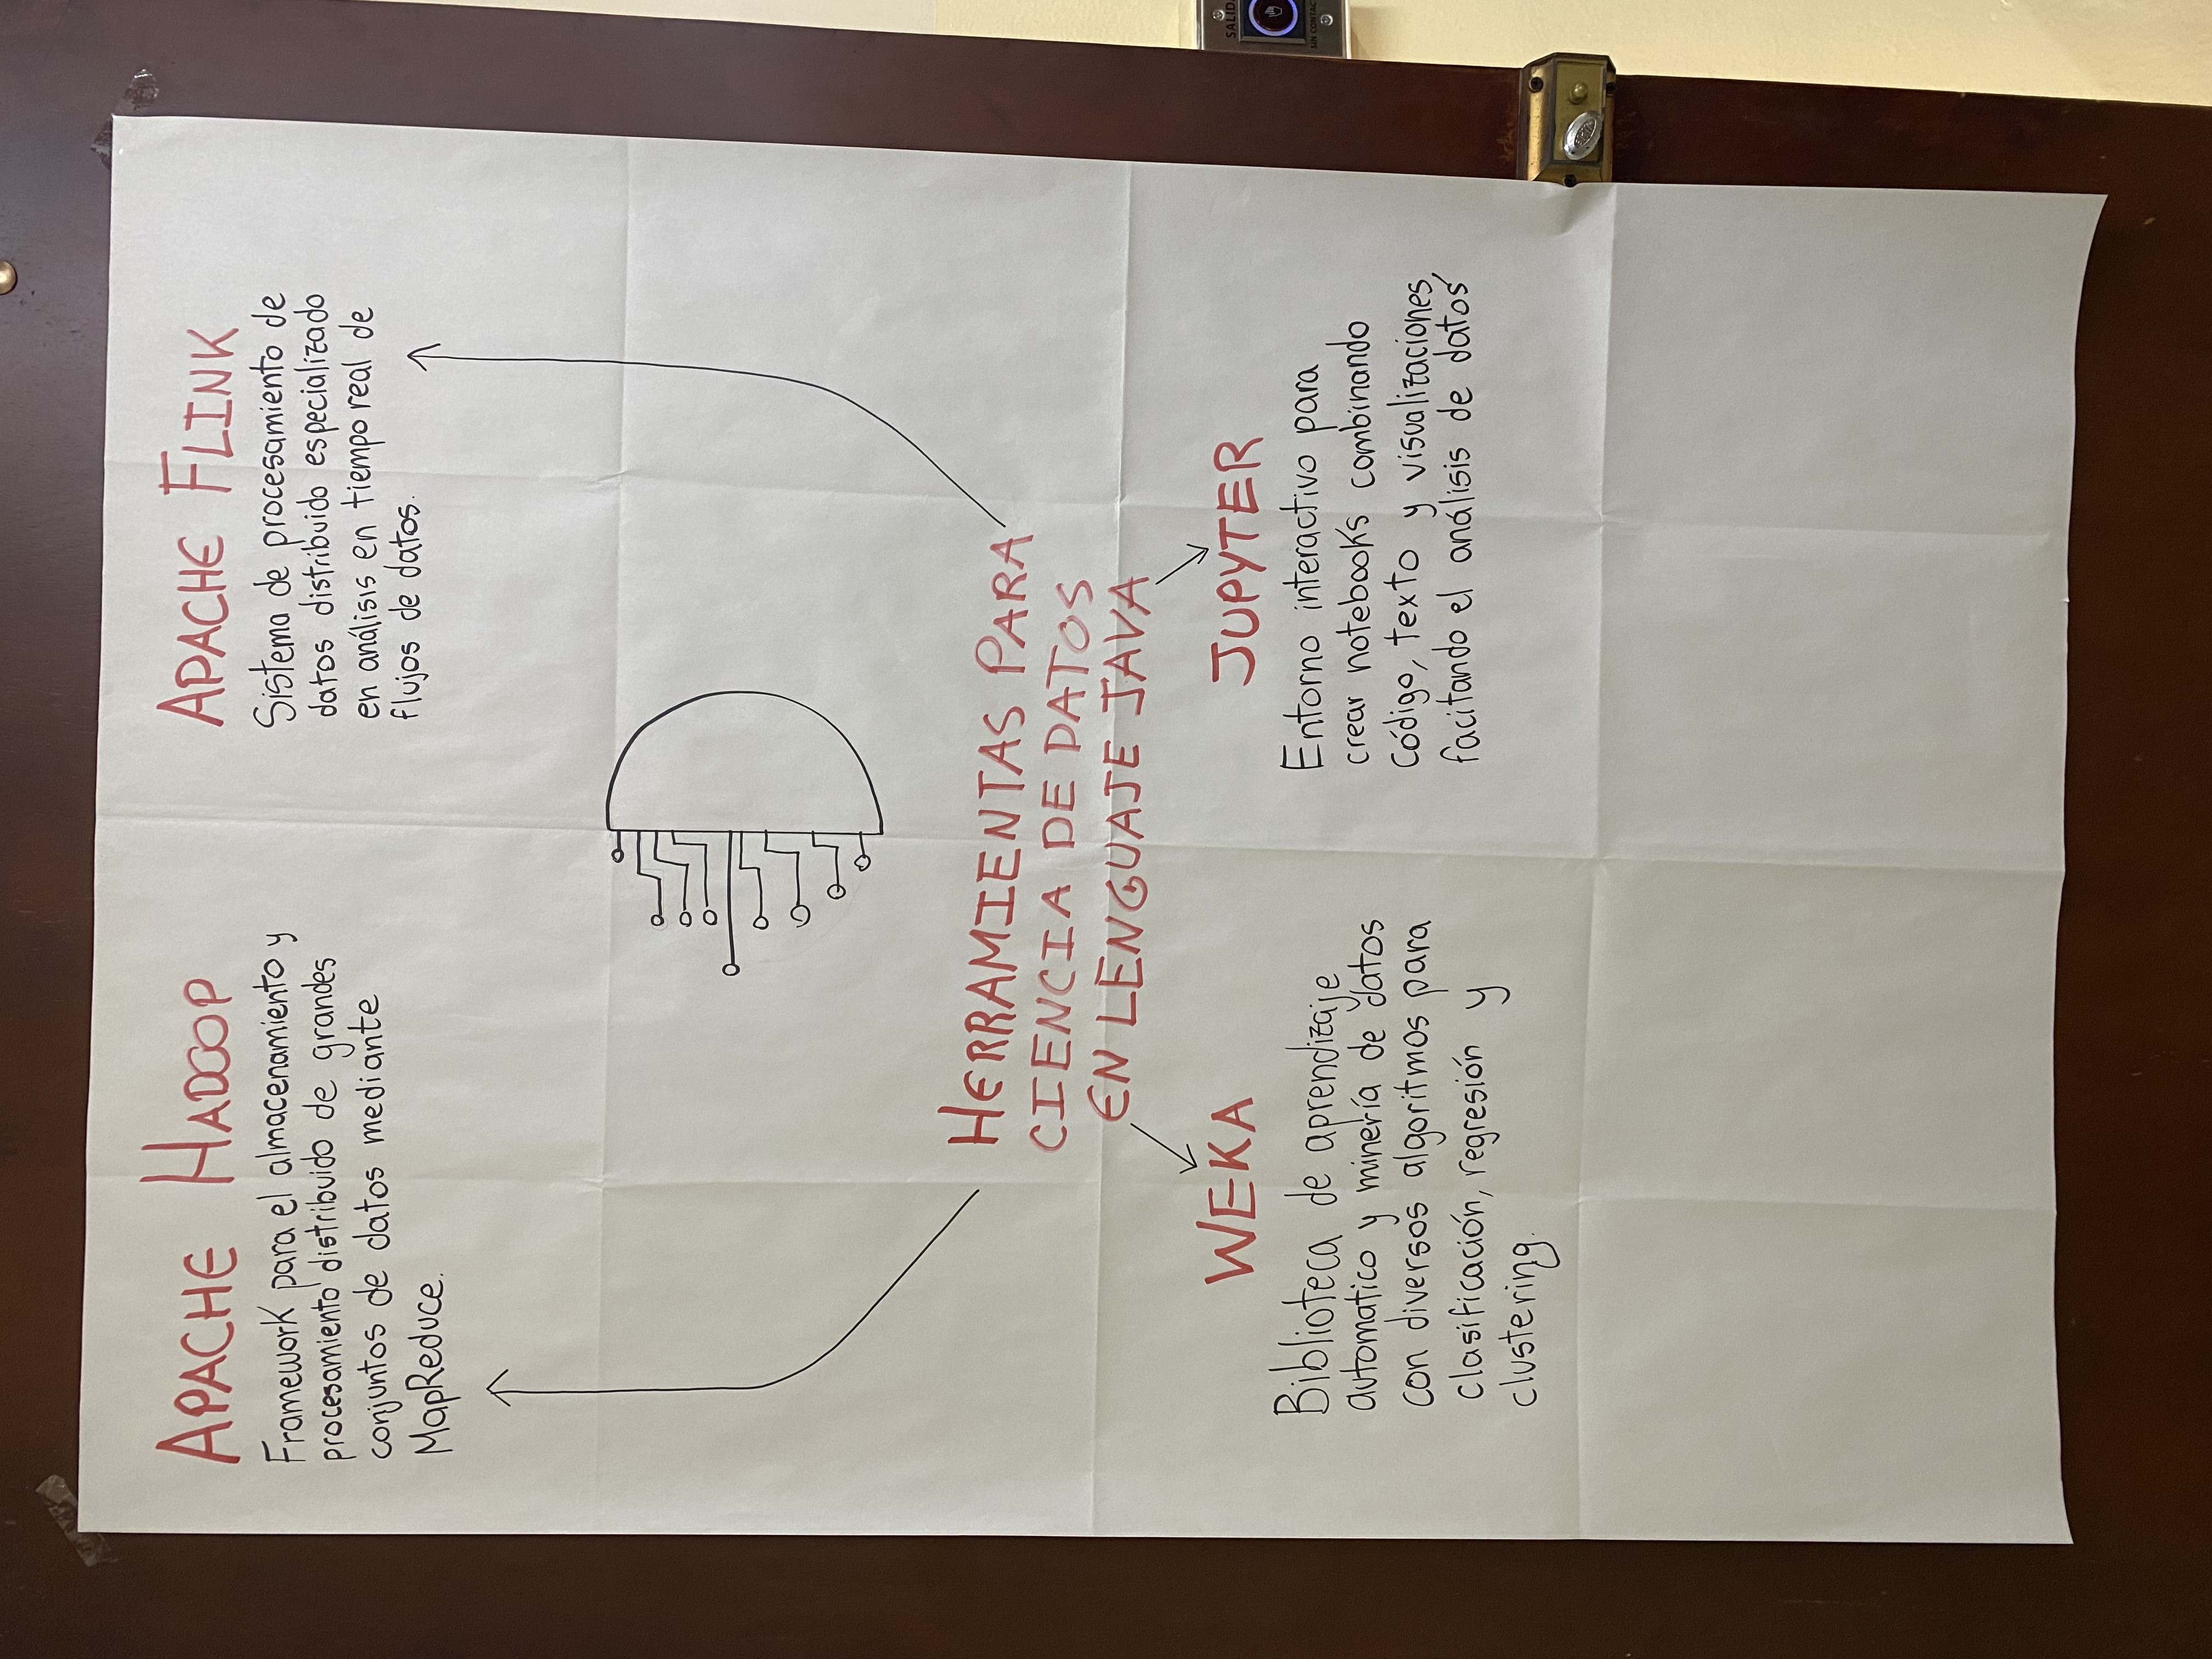 APACHE HADOOP
Framework para el almacenamiento y
procesamiento distribuido de grandes
conjuntos de datos mediante
MapReduce.
APACHE FLINK
Sistema de procesamiento de
datos distribuido especializado
en análisis en tiempo real de
flujos de datos.
HERRAMIENTAS PARA
CIENCIA DE DATOS
EN LENGUAJE JAVA
WEKA
Biblioteca de aprendizaje
automatico y minería de datos
con diversos algoritmos para
clasificación, regresión y
clustering.
JUPYTER
Entorno interactivo para
crear notebooks combinando
código, texto y visualizaciones,
facitando el análisis de datos
SALID
SIN CONTAC